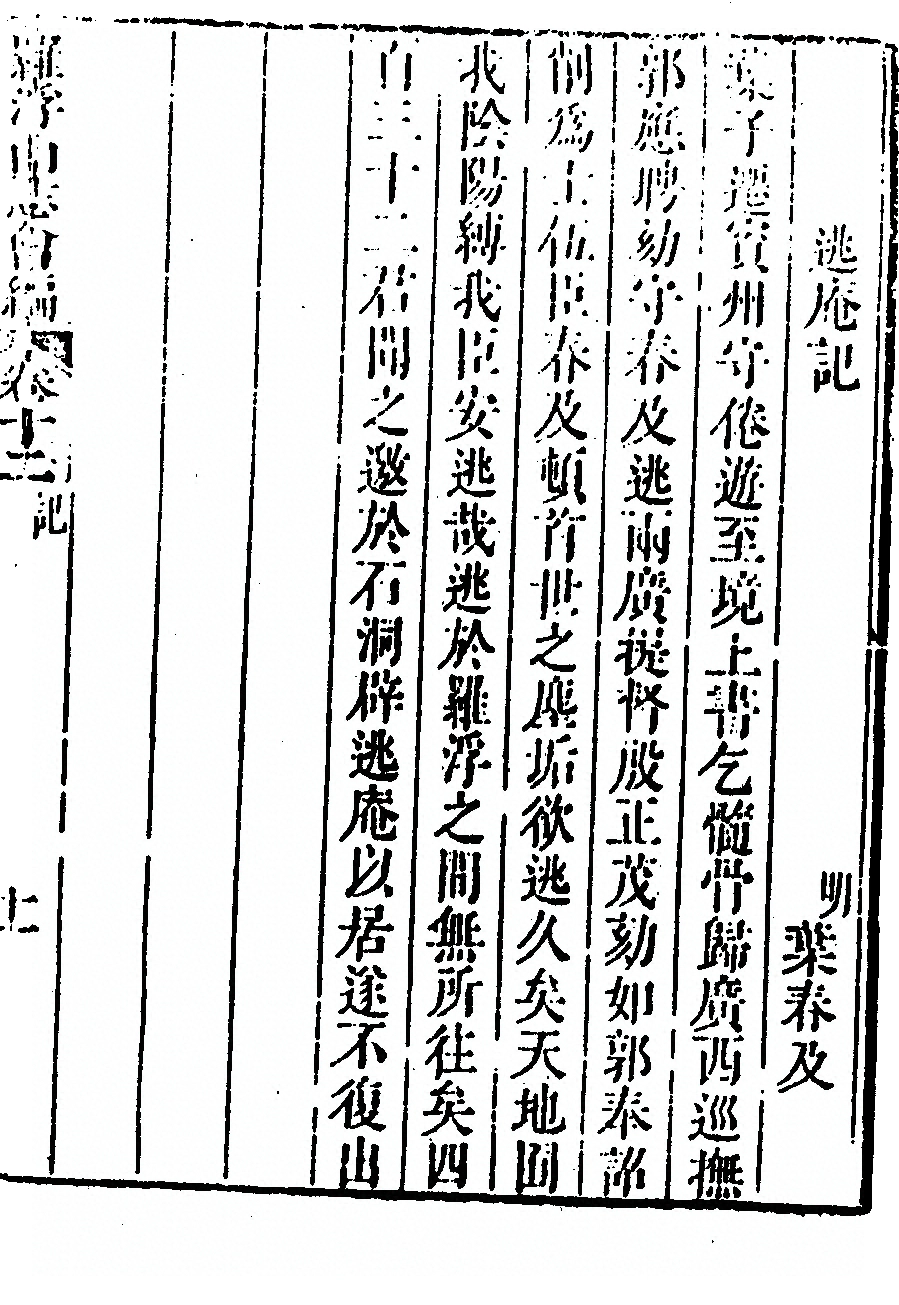 逃庵記
明
葉春及
葉子遷賓州守倦遊至境上書乞髓骨歸廣西巡撫
郭應聘劾守春及逃兩廣提督殷正茂劾如郭奉詔
削為士伍臣春及頓首世之塵垢欲逃久矣天地囿
我陰陽縛我臣安逃哉逃於羅浮之間無所往矣四
百三十二君聞之邀於石洞辟逃庵以居遂不復出
羅浮山志會編 卷十二 記
七